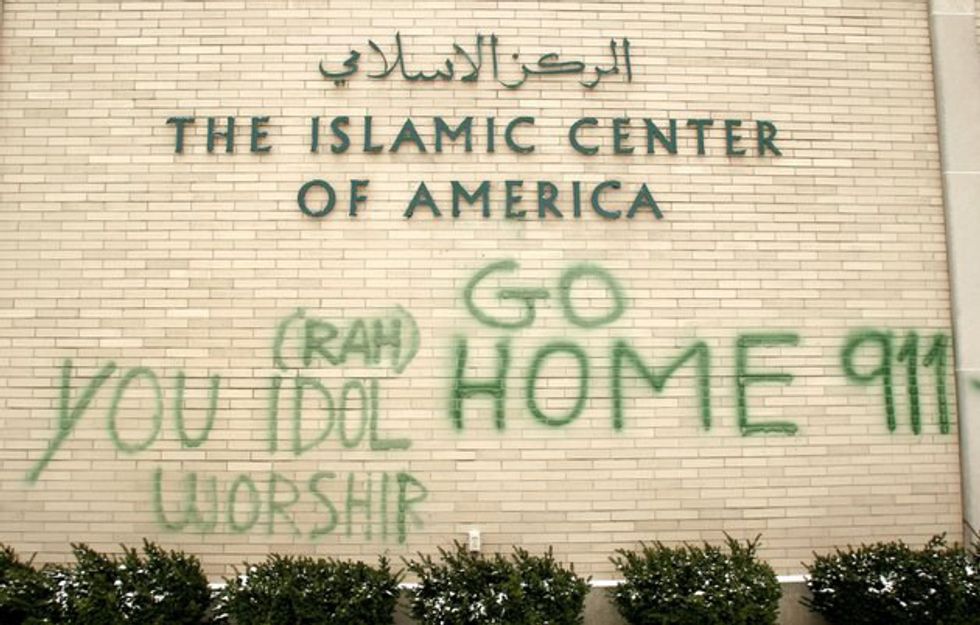 المركز الاسلامي
THE ISLAMIC CENTER
OF AMERICA
GO
HOME 911
(RAH)
YOU IDOL
WORSHIP